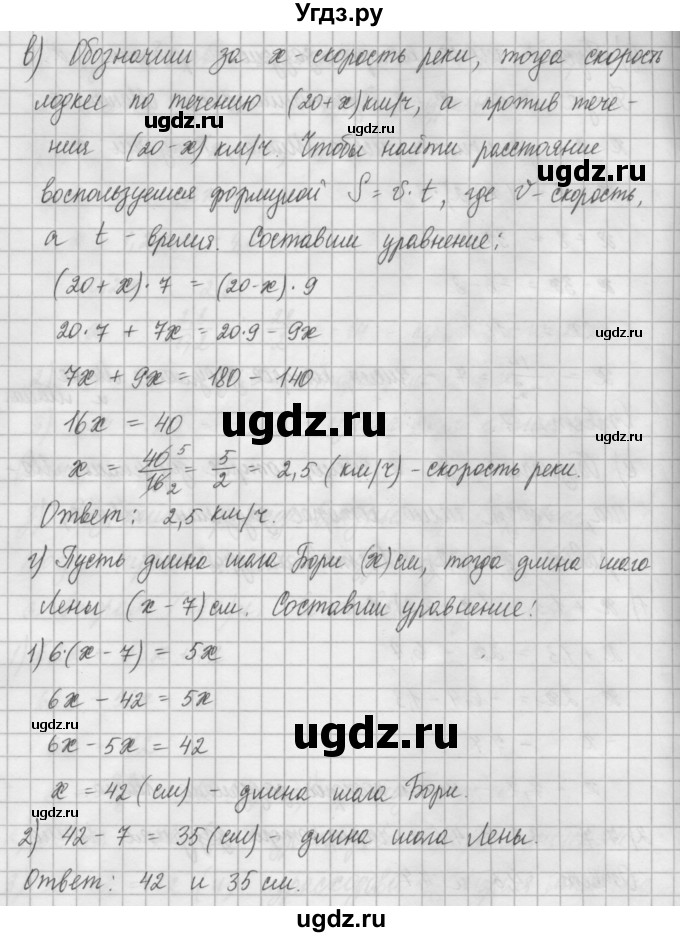 Угдз.ру
в) Обозначим за x - скорость реки, тогда скорость
лодки по течению (20+x) км/ч, а против тече-
ния (20-x) км/ч. Чтобы найти расстояние
воспользуемся формулой S = v · t, где v - скорость,
а t - время. Составим уравнение:
(20 + x) · 7 = (20-x) · 9
20·7 + 7x = 20·9 - 9x
7x + 9x = 180 - 140
16x = 40
x = 40/16 5/2 = 5/2 = 2,5 (км/ч) - скорость реки.
Ответ: 2,5 км/ч.
г) Пусть длина шага Бори (x) см, тогда длина шага
Лены (x - 7) см. Составим уравнение:
1) 6·(x - 7) = 5x
6x - 42 = 5x
6x - 5x = 42
x = 42 (см) - длина шага Бори.
2) 42 - 7 = 35 (см) - длина шага Лены.
Ответ: 42 и 35 см.
ugdz.ru
ugdz.ru
ugdz.ru
ugdz.ru
ugdz.ru
ugdz.ru
ugdz.ru
ugdz.ru
ugdz.ru
ugdz.ru
ugdz.ru